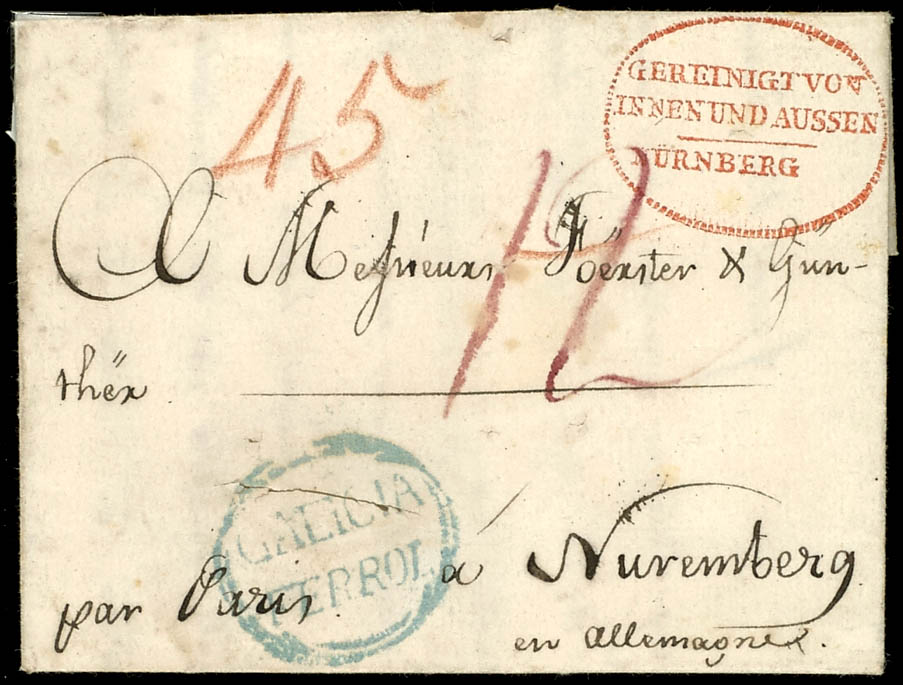 45
GEREINIGT VON
INNEN UND AUSSEN
NÜRNBERG
12
A Messieurs Foerster & Gün-
ther
GALICIA
FERROL
par Paris. à Nuremberg
en Allemagne.